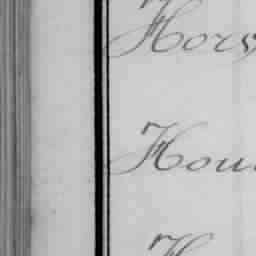 Hors
Hou
H